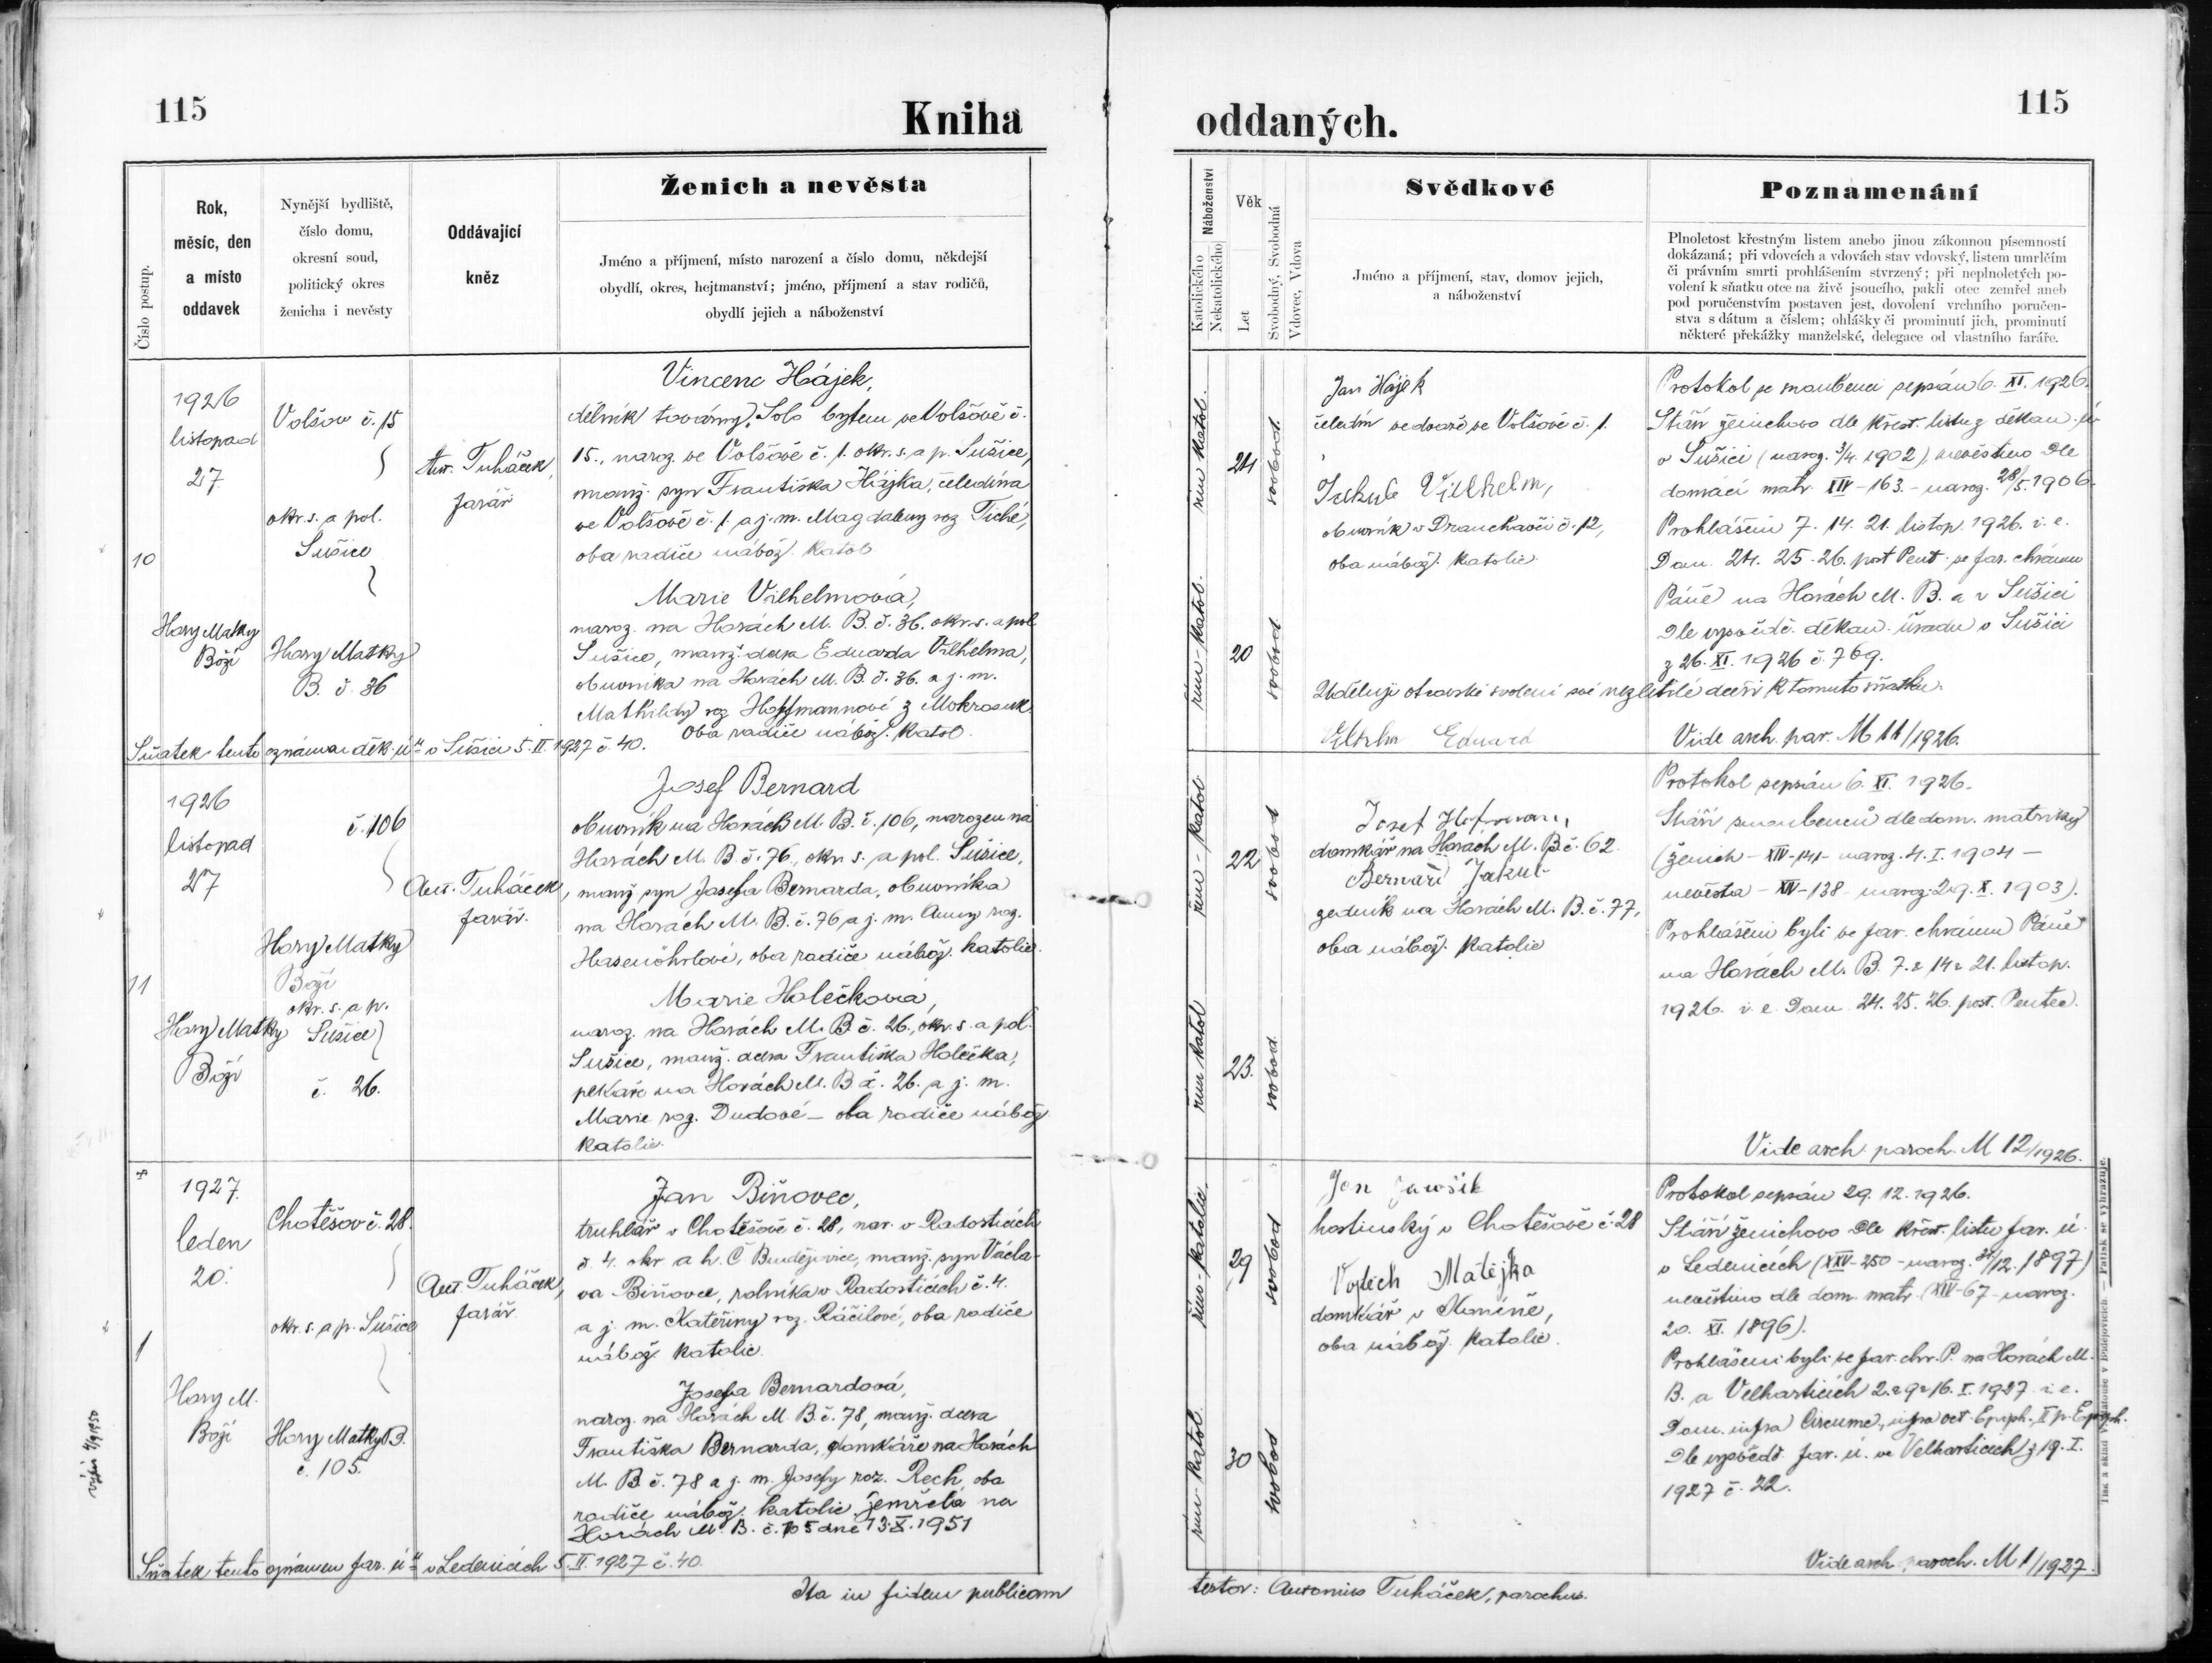 115
Kniha
Číslo postup.
Rok,
měsíc, den
a místo
oddavek
Nynější bydliště,
číslo domu,
okresní soud,
politický okres
ženicha i nevěsty
Oddávající
kněz
Ženich a nevěsta
Jméno a příjmení, místo narození a číslo domu, někdejší
obydlí, okres, hejtmanství; jméno, příjmení a stav rodičů,
obydlí jejich a náboženství
10
1926
listopad
27
Hory Matky
Boží
Volšov č. 15
okr. s. a pol.
Sušice
Hory Matky
B. č. 36
Ant. Tuháček,
farář
Vincenc Hájek,
dělník továrny Solo bytem ve Volšově č.
15., naroz. ve Volšově č. 1. okr. s. a p. Sušice,
manž. syn Františka Hájka, čeledína
ve Volšově č. 1. a j. m. Magdaleny roz Tiché,
oba rodiče nábož. katol
Marie Vilhelmová,
naroz. na Horách M. B. č. 36. okr. s. a pol
Sušice, manž. dcera Eduarda Vilhelma,
obuvníka na Horách M. B. č. 36. a j. m.
Mathildy roz Hoffmannové z Mokrosuk.
Oba rodiče nábož. katol.
Sňatek tento oznámen děk. ú. v Sušici 5. II. 1927 č. 40.
11
1926
listopad
27
Hory Matky
Boží
č. 106
Hory Matky
Boží
okr. s. a p.
Sušice
č. 26.
Ant. Tuháček,
farář.
Josef Bernard
obuvník na Horách M. B. č. 106, narozen na
Horách M. B. č. 76., okr. s. a pol. Sušice,
manž syn Josefa Bernarda, obuvníka
na Horách M. B. č. 76 a j. m. Anny roz.
Hasenöhrlové, oba rodiče nábož. katolic.
Marie Holečková,
naroz. na Horách M. B. č. 26., okr. s. a pol.
Sušice, manž. dcera Františka Holečka,
pekaře na Horách M. B č. 26. a j. m.
Marie roz. Dudové – oba rodiče nábož
katolic.
1
1927.
leden
20.
Hory M.
Boží
Chotěšov č. 28.
okr. s. a p. Sušice
Hory Matky B.
č. 105.
Ant. Tuháček,
farář
Jan Biňovec,
truhlář v Chotěšově č. 28, nar. v Radosticích
č. 4. okr a h. Č Budějovice, manž. syn Václa-
va Biňovce, rolníka v Radosticích č. 4.
a j. m. Kateřiny roz. Ráčilové, oba rodiče
nábož. katolic.
Josefa Bernardová,
naroz. na Horách M. B. č. 78, manž. dcera
Františka Bernarda, domkáře na Horách
M. B. č. 78 a j. m. Josefy roz. Rech, oba
rodiče nábož. katolic. zemřela na
Horách M. B. č. 105 dne 13. X. 1951
Sňatek tento oznámen far. ú. v Ledenicích 5. II. 1927 č. 40.
Ita in fidem publicam
115
oddaných.
Náboženství
Katolického
Nekatolického
Věk
Let
Svobodný, Svobodná
Vdovec, Vdova
Svědkové
Jméno a příjmení, stav, domov jejich,
a náboženství
Poznamenání
Plnoletost křestným listem anebo jinou zákonnou písemností
dokázaná; při vdovcích a vdovách stav vdovský, listem umrlčím
či právním smrti prohlášením stvrzený; při neplnoletých po-
volení k sňatku otce na živě jsoucího, pakli otec zemřel aneb
pod poručenstvím postaven jest, dovolení vrchního poručen-
stva s dátum a číslem; ohlášky či prominutí jich, prominutí
některé překážky manželské, delegace od vlastního faráře.
řím katol.
24
svobod.
řím-katol.
20
svobod
Jan Hájek
čeledín ve dvoře ve Volšově č. 1.
Vilhelm,
obuvník v č. 12,
oba nábož. katolic.
Uděluji otcovské svolení své nezletilé dceři k tomuto sňatku.
Eduard
Protokol se snoubenci sepsán 6. XI. 1926.
Stáří ženichovo dle křest. listu z děkan. ú.
v Sušici (naroz. 3/4. 1902), nevěstino dle
domácí matr. XIV – 163. – naroz. 28/5. 1906.
Prohlášeni 7. 14. 21. listop. 1926. i. e.
Dom. 24. 25. 26. post Pent. ve far. chrámu
Páně na Horách M. B. a v Sušici
dle výpověd. děkan. úřadu v Sušici
z 26. XI. 1926 č. 769.
Vide arch. par. M 11/1926.
řím-katol
22
svobod
řím katol
23.
svobod.
Josef Hofmann,
domkář na Horách M. B č. 62.
Bernard Jakub
zedník na Horách M. B. č. 77,
oba nábož. katolic
Protokol sepsán 6. XI. 1926.
Stáří snoubenců dle dom. matriky
(ženich – XIV-141- naroz. 4. I. 1904 –
nevěsta – XIV-138 – naroz. 29. X. 1903).
Prohlášeni byli ve far. chrámu Páně
na Horách M. B. 7. a 14 a 21. listop.
1926. i. e. Dom. 24. 25. 26. post. Pentec.
Vide arch. paroch. M 12/1926.
řím-katolic.
29
svobod
řím-katol.
30
svobod
Jan
hostinský v Chotěšově č. 28
Vojtěch Matějka
domkář v
oba nábož. katolic.
Protokol sepsán 29. 12. 1926.
Stáří ženichovo dle křest. listu far. ú.
v Ledenicích (XXV-250 – naroz. /12. 1897)
nevěstino dle dom. matr. (XIV-67- naroz.
20. XI. 1896).
Prohlášeni byli ve far. chr. P. na Horách M.
B. a Velharticích 2. a 9 a 16. I. 1927 i. e.
Dom. infra Circumc., infra oct. Epiph., II p. Epiph.
dle výpověd. far. ú. ve Velharticích z 19. I.
1927 č. 22.
Vide arch. paroch. M 1/1927.
testor: Antonius Tuháček, parochus.